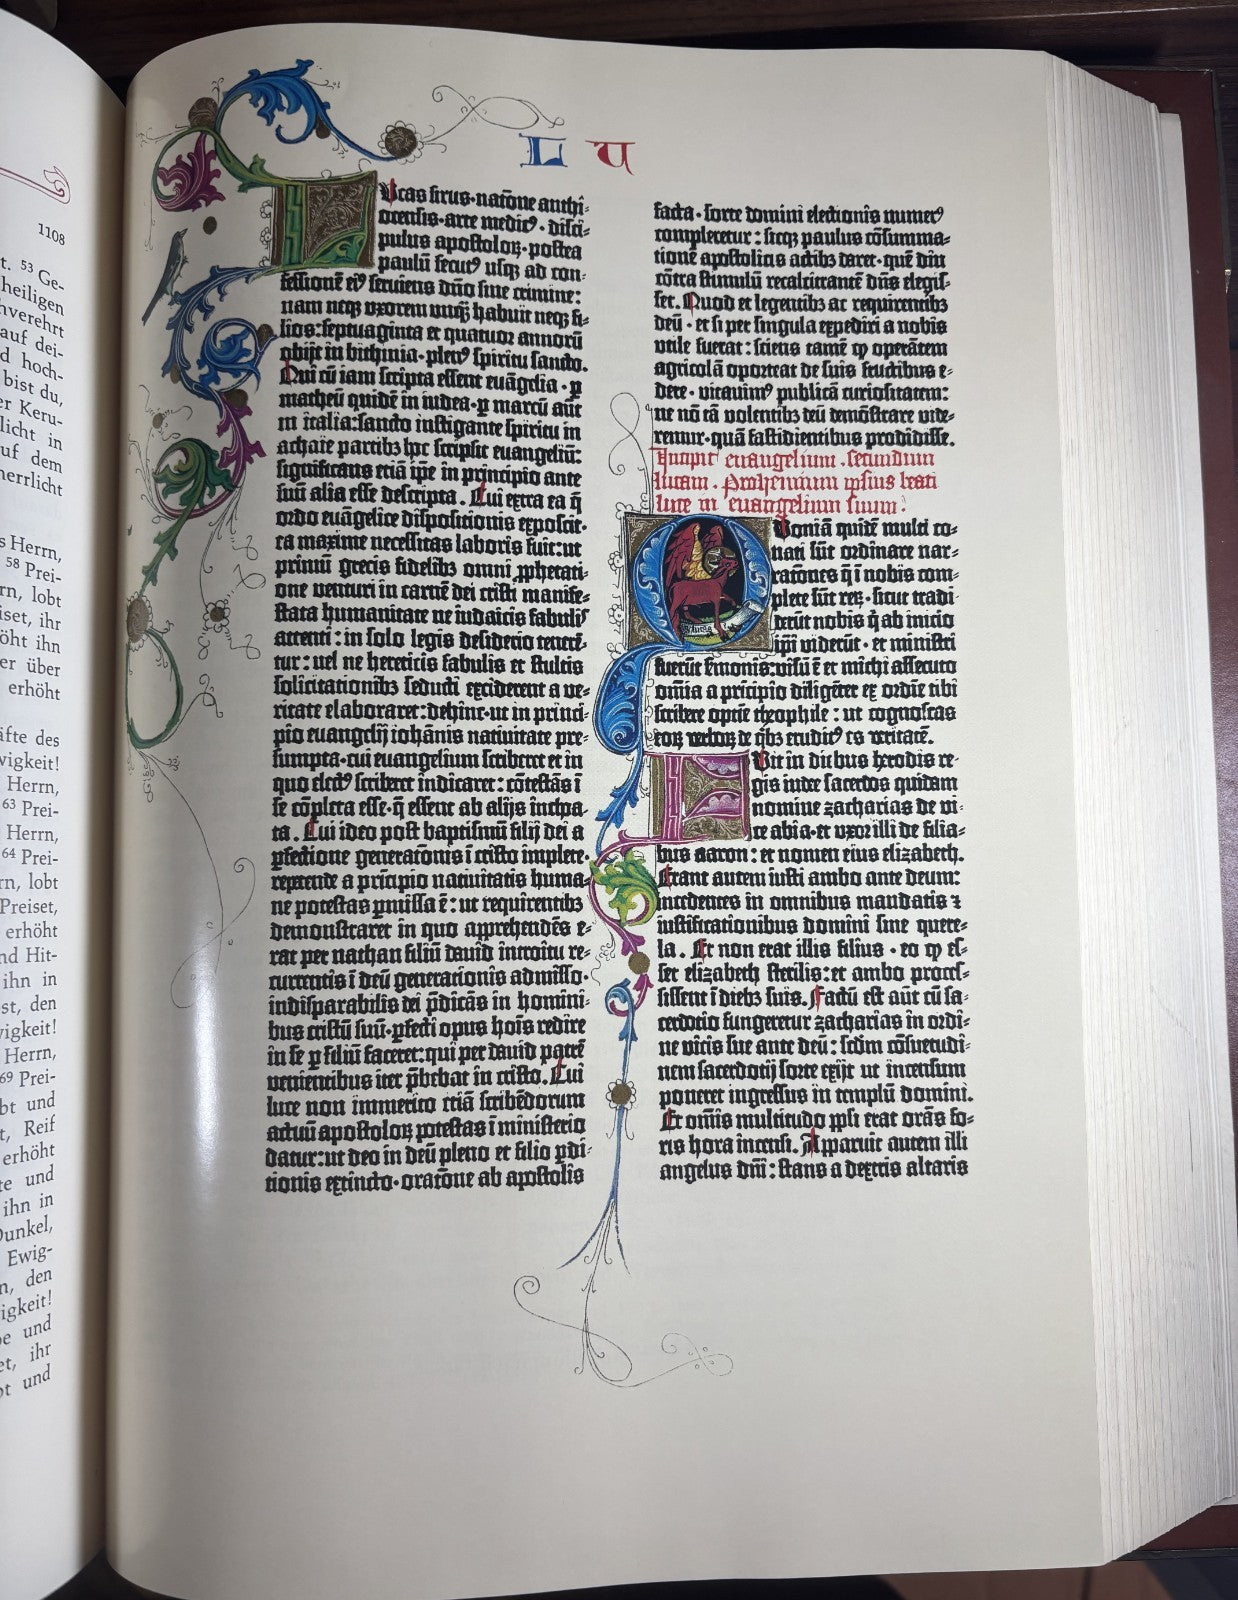 1108
t. 53 Ge-
heiligen
hverehrt
auf dei-
d hoch-
bist du,
er Keru-
licht in
uf dem
herrlicht
s Herrn,
58 Prei-
rn, lobt
iset, ihr
öht ihn
er über
erhöht
äfte des
wigkeit!
Herrn,
63 Prei-
Herrn,
64 Prei-
rn, lobt
Preiset,
erhöht
nd Hit-
ihn in
st, den
vigkeit!
Herrn,
69 Prei-
bt und
t, Reif
erhöht
te und
ihn in
Dunkel,
Ewig-
n, den
igkeit!
e und
et, ihr
bt und
L U
Lucas sirus·natōne anthi-
ocensis·arte medicꝰ·disci-
pulus apostoloꝝ·postea
paulū secutꝰ usqꝫ ad con-
fessionē eiꝰ serviens dño sine crimine:
nam neqꝫ uxorem unqꝫ habuit neqꝫ fi-
lios:septuaginta et quatuor annorū
obijt in bithinia·plenꝰ spiritu sancto.
Qui cū iam scripta essent euāgelia·ꝑ
matheū quidē in iudea·ꝑ marcū aūt
in italia:sancto instigante spiritu in
achaie partibꝫ hoc scripsit euangeliū:
significans etiā ipē in principio ante
suū alia esse descripta. Cui extra ea q̄
ordo euāgelice dispositionis exposcit·
ea maxime necessitas laboris fuit:ut
primū grecis fidelibꝫ omni ꝓphetati-
one venturi in carnē dei cristi manife-
stata humanitate ne iudaicis fabulis
attenti:in solo legis desiderio tenerē-
tur:vel ne hereticis fabulis et stultis
solicitationibꝫ seducti exciderent a ve-
ritate elaboraret:dehinc·ut in princi-
pio euangelij iohānis nativitate pre-
sumpta·cui euangelium scriberet et in
quo electꝰ scriberet indicaret:cōtestās ī
se cōpleta esse·q̄ essent ab alijs inchoa-
ta. Cui ideo post baptismū filij dei a
ꝑfectione generatōnis ī cristo implete·
repetende a principio nativitatis huma-
ne potestas ꝑmissa ē:ut requirentibꝫ
demonstraret in quo apprehendēs e-
rat per nathan filiū david introitu re-
currentis ī deū generationis admisso·
indisparabilis dei p̄dicās in homini-
bus cristū suū·ꝑfecti opus hoīs redire
in se ꝑ filiū faceret:qui per david patrē
venientibus iter p̄bebat in cristo. Cui
luce non immerito etiā scribēdorum
actuū apostoloꝝ potestas ī ministerio
datur:ut deo in deū pleno et filio ꝓdi-
tionis extincto·oratōne ab apostolis
facta·sorte domini electionis numerꝰ
compleretur:sicqꝫ paulus cōsumma-
tionē apostolicis actibꝫ daret·quē diu
cōtra stimulū recalcitrantē dñs elegis-
set. Quod et legentibꝫ ac requirentibꝫ
deū·et si per singula expediri a nobis
utile fuerat:sciens tamē ꝙ operātem
agricolā oporteat de suis fructibus e-
dere·vitavimꝰ publicā curiositatem:
ne nō tā volentibꝫ deū demōstrare vide-
remur·quā fastidientibus prodidisse.
Incipit euangelium·secundum
lucam. Prohemium ipsius beati
luce in euangelium suum.
Quoniā quidē multi co-
nati sūt ordinare nar-
ratōnes q̄ ī nobis com-
plete sūt reꝝ·sicut tradi-
derūt nobis q̄ ab inicio
ipi viderūt·et ministri
fuerūt smonis:visū ē et michi assecuto
omīa a pricipio diligēter ex ordīe tibi
scribere optīe theophile:ut cognoscas
eoꝝ verboꝝ de qͥbꝫ eruditꝰ es veritatē.
Fuit in diebus herodis re-
gis iudee sacerdos quidam
nomine zacharias de vi-
ce abia·et uxor illi de filia-
bus aaron:et nomen eius elizabeth.
Erant autem iusti ambo ante deum:
incedentes in omnibus mandatis ⁊
iustificationibus domini sine quere-
la. Et non erat illis filius·eo ꝙ es-
set elizabeth sterilis:et ambo proces-
sissent ī diebꝫ suis. Factū est aūt cū sa-
cerdotio fungeretur zacharias in ordi-
ne vicis sue ante deū:scdm cōsuetudi-
nem sacerdotij sorte exijt ut incensum
poneret ingressus in templū domini.
Et omīs multitudo ppli erat orās fo-
ris hora incensi. Apparuit autem illi
angelus dñi:stans a dextris altaris